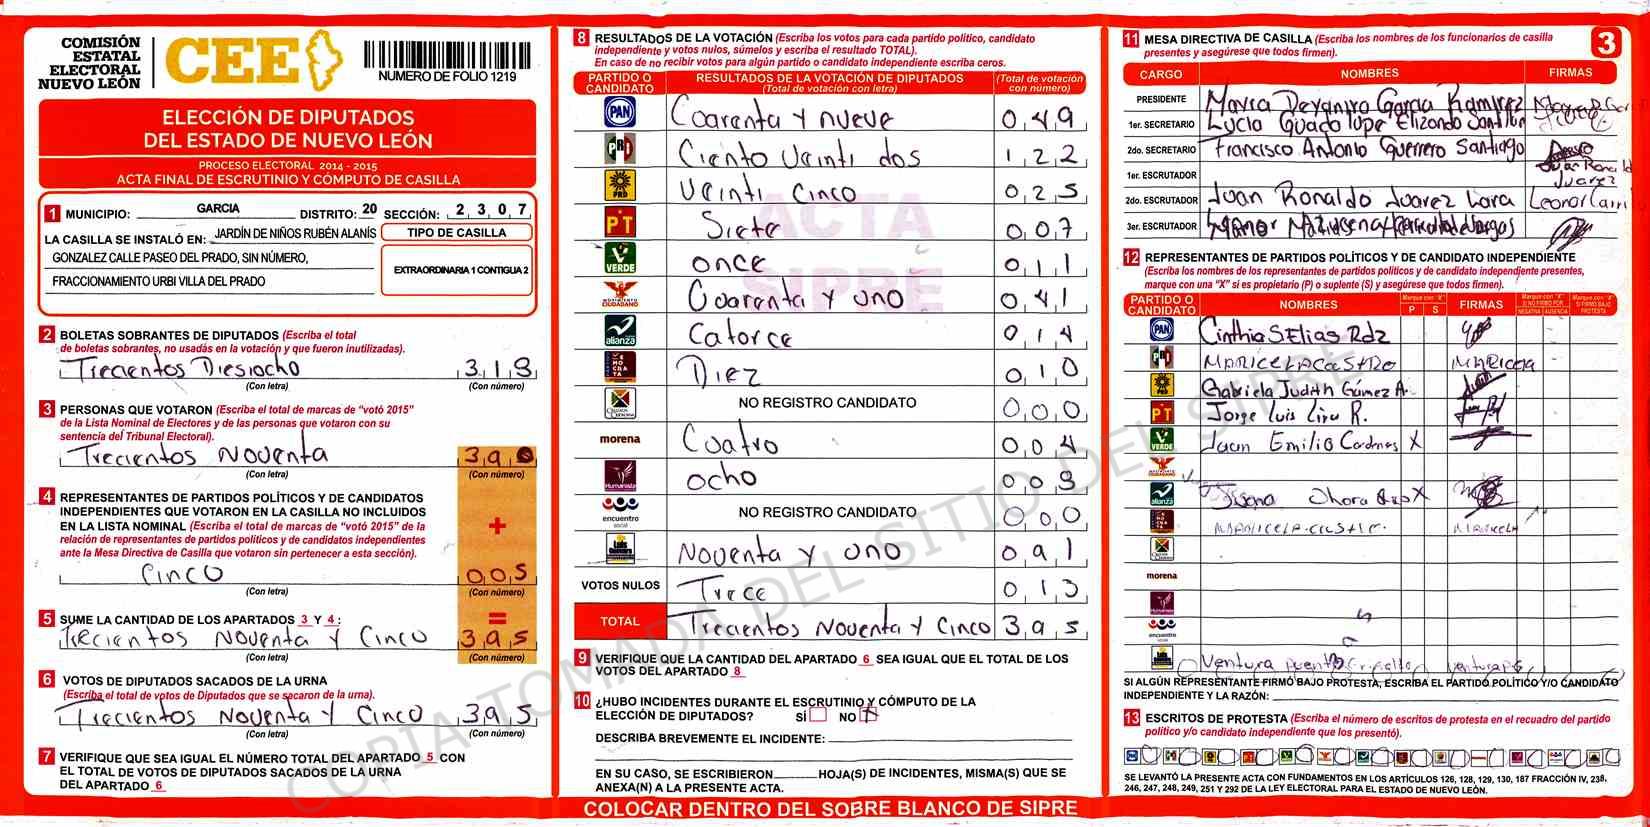 COMISIÓN
ESTATAL
ELECTORAL
NUEVO LEÓN
CEE
NUMERO DE FOLIO 1219
ELECCIÓN DE DIPUTADOS
DEL ESTADO DE NUEVO LEÓN
PROCESO ELECTORAL 2014 - 2015
ACTA FINAL DE ESCRUTINIO Y CÓMPUTO DE CASILLA
1 MUNICIPIO: GARCIA DISTRITO: 20 SECCIÓN: 2,3,0,7,
LA CASILLA SE INSTALÓ EN: JARDÍN DE NIÑOS RUBÉN ALANÍS
GONZALEZ CALLE PASEO DEL PRADO, SIN NÚMERO,
FRACCIONAMIENTO URBI VILLA DEL PRADO
TIPO DE CASILLA
EXTRAORDINARIA 1 CONTIGUA 2
2 BOLETAS SOBRANTES DE DIPUTADOS (Escriba el total
de boletas sobrantes, no usadas en la votación y que fueron inutilizadas).
Trecientos Diesiocho 3,1,8
(Con letra) (Con número)
3 PERSONAS QUE VOTARON (Escriba el total de marcas de “votó 2015”
de la Lista Nominal de Electores y de las personas que votaron con su
sentencia del Tribunal Electoral).
Trecientos Noventa 3,9,0
(Con letra) (Con número)
4 REPRESENTANTES DE PARTIDOS POLÍTICOS Y DE CANDIDATOS
INDEPENDIENTES QUE VOTARON EN LA CASILLA NO INCLUIDOS
EN LA LISTA NOMINAL (Escriba el total de marcas de “votó 2015” de la
relación de representantes de partidos políticos y de candidatos independientes
ante la Mesa Directiva de Casilla que votaron sin pertenecer a esta sección).
+
Cinco 0,0,5
(Con letra) (Con número)
=
5 SUME LA CANTIDAD DE LOS APARTADOS 3 Y 4 :
Trecientos Noventa y Cinco 3,9,5
(Con letra) (Con número)
6 VOTOS DE DIPUTADOS SACADOS DE LA URNA
(Escriba el total de votos de Diputados que se sacaron de la urna).
Trecientos Noventa y Cinco 3,9,5
(Con letra) (Con número)
7 VERIFIQUE QUE SEA IGUAL EL NÚMERO TOTAL DEL APARTADO 5 CON
EL TOTAL DE VOTOS DE DIPUTADOS SACADOS DE LA URNA
DEL APARTADO 6
8 RESULTADOS DE LA VOTACIÓN (Escriba los votos para cada partido político, candidato
independiente y votos nulos, súmelos y escriba el resultado TOTAL).
En caso de no recibir votos para algún partido o candidato independiente escriba ceros.
PARTIDO O CANDIDATO RESULTADOS DE LA VOTACIÓN DE DIPUTADOS (Total de votación con letra) (Total de votación con número)
PAN Coarenta y nueve 0,4,9
PRI Ciento Veinti dos 1,2,2
PRD Veinti Cinco 0,2,5
PT Siete 0,0,7
VERDE once 0,1,1
MOVIMIENTO CIUDADANO Cuarenta y uno 0,4,1
alianza Catorce 0,1,4
DEMOCRATA Diez 0,1,0
NO REGISTRO CANDIDATO 0,0,0
morena Cuatro 0,0,4
Humanista ocho 0,0,8
encuentro social NO REGISTRO CANDIDATO 0,0,0
Noventa y uno 0,9,1
VOTOS NULOS Trece 0,1,3
TOTAL Trecientos Noventa y Cinco 3,9,5
ACTA
SIPRE
9 VERIFIQUE QUE LA CANTIDAD DEL APARTADO 6 SEA IGUAL QUE EL TOTAL DE LOS
VOTOS DEL APARTADO 8
10 ¿HUBO INCIDENTES DURANTE EL ESCRUTINIO Y CÓMPUTO DE LA
ELECCIÓN DE DIPUTADOS? SÍ NO X
DESCRIBA BREVEMENTE EL INCIDENTE:
EN SU CASO, SE ESCRIBIERON HOJA(S) DE INCIDENTES, MISMA(S) QUE SE
ANEXA(N) A LA PRESENTE ACTA.
COLOCAR DENTRO DEL SOBRE BLANCO DE SIPRE
11 MESA DIRECTIVA DE CASILLA (Escriba los nombres de los funcionarios de casilla
presentes y asegúrese que todos firmen).
3
CARGO NOMBRES FIRMAS
PRESIDENTE Mayra Deyanira Garcia Ramirez
1er. SECRETARIO Lucia Guadalupe Elizondo Santillan
2do. SECRETARIO Francisco Antonio Guerrero Santiago
1er. ESCRUTADOR Juan Ronald Juarez
2do. ESCRUTADOR Juan Ronaldo Juarez Lara
3er. ESCRUTADOR
12 REPRESENTANTES DE PARTIDOS POLÍTICOS Y DE CANDIDATO INDEPENDIENTE
(Escriba los nombres de los representantes de partidos políticos y de candidato independiente presentes,
marque con una “X” si es propietario (P) o suplente (S) y asegúrese que todos firmen).
PARTIDO O CANDIDATO NOMBRES Marque con "X" P S FIRMAS Marque con "X" SI NO FIRMÓ POR NEGATIVA AUSENCIA Marque con "X" SI FIRMÓ BAJO PROTESTA
PAN Cinthia S Elias Rdz
PRI MARICELA CASTRO MARICELA
PRD Gabriela Judith Gámez A.
PT Jorge Luis Lira R.
VERDE Juan Emilio Cardenas X
alianza X
MARICELA CASTRO MARICELA
morena
Humanista
encuentro social
Ventura Puente
SI ALGÚN REPRESENTANTE FIRMÓ BAJO PROTESTA, ESCRIBA EL PARTIDO POLÍTICO Y/O CANDIDATO
INDEPENDIENTE Y LA RAZÓN:
13 ESCRITOS DE PROTESTA (Escriba el número de escritos de protesta en el recuadro del partido
político y/o candidato independiente que los presentó).
SE LEVANTÓ LA PRESENTE ACTA CON FUNDAMENTOS EN LOS ARTÍCULOS 126, 128, 129, 130, 187 FRACCIÓN IV, 238,
246, 247, 248, 249, 251 Y 292 DE LA LEY ELECTORAL PARA EL ESTADO DE NUEVO LEÓN.
COPIA TOMADA DEL SITIO DEL SIPRE